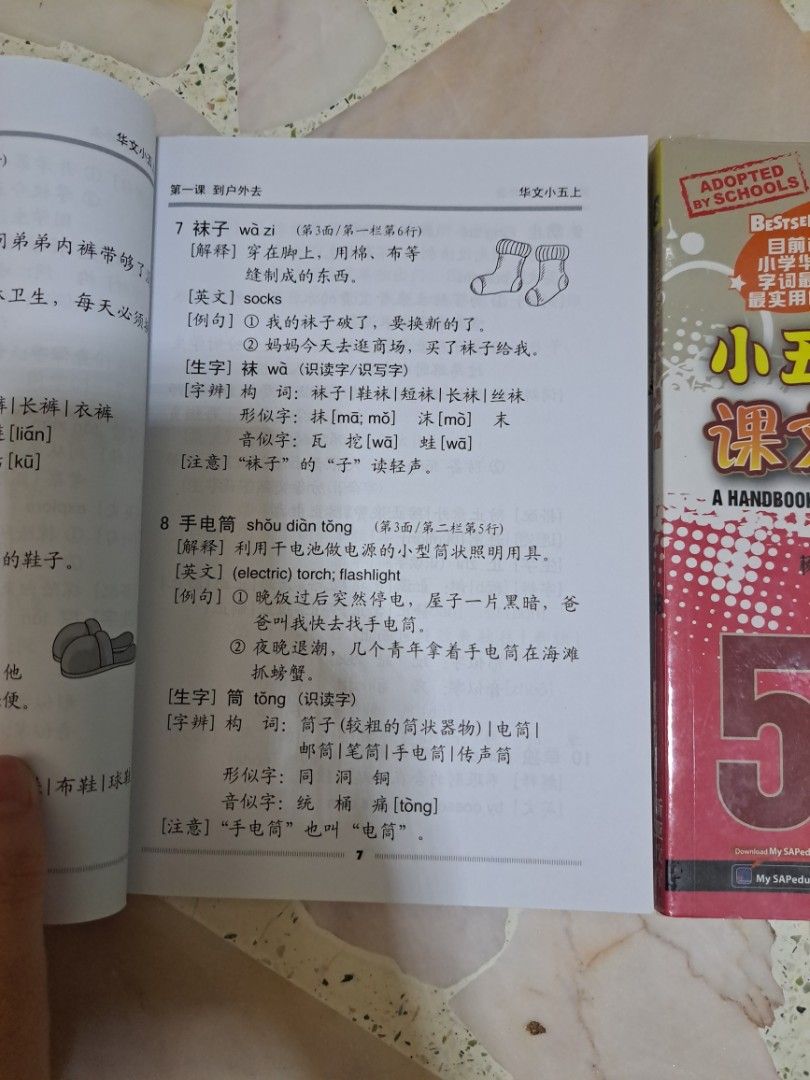 华文小五
弟弟内裤带够了
卫生，每天必须
长裤|衣裤
[lián]
[kū]
的鞋子。
他
便。
布鞋|球鞋
第一课 到户外去
华文小五上
7 袜子 wà zi （第3面/第一栏第6行）
[解释] 穿在脚上，用棉、布等
缝制成的东西。
[英文] socks
[例句] ① 我的袜子破了，要换新的了。
② 妈妈今天去逛商场，买了袜子给我。
[生字] 袜 wà （识读字/识写字）
[字辨] 构 词：袜子|鞋袜|短袜|长袜|丝袜
形似字：抹[mā; mǒ] 沫[mò] 末
音似字：瓦 挖[wā] 蛙[wā]
[注意] “袜子”的“子”读轻声。
8 手电筒 shǒu diàn tǒng （第3面/第二栏第5行）
[解释] 利用干电池做电源的小型筒状照明用具。
[英文] (electric) torch; flashlight
[例句] ① 晚饭过后突然停电，屋子一片黑暗，爸
爸叫我快去找手电筒。
② 夜晚退潮，几个青年拿着手电筒在海滩
抓螃蟹。
[生字] 筒 tǒng （识读字）
[字辨] 构 词：筒子(较粗的筒状器物)|电筒|
邮筒|笔筒|手电筒|传声筒
形似字：同 洞 铜
音似字：统 桶 痛[tòng]
[注意] “手电筒”也叫“电筒”。
7
ADOPTED
BY SCHOOLS
BESTSE
目前
小学华
字词最
最实用
小五
课文
A HANDBOOK
5
Download My SAPedu
My SAPedu